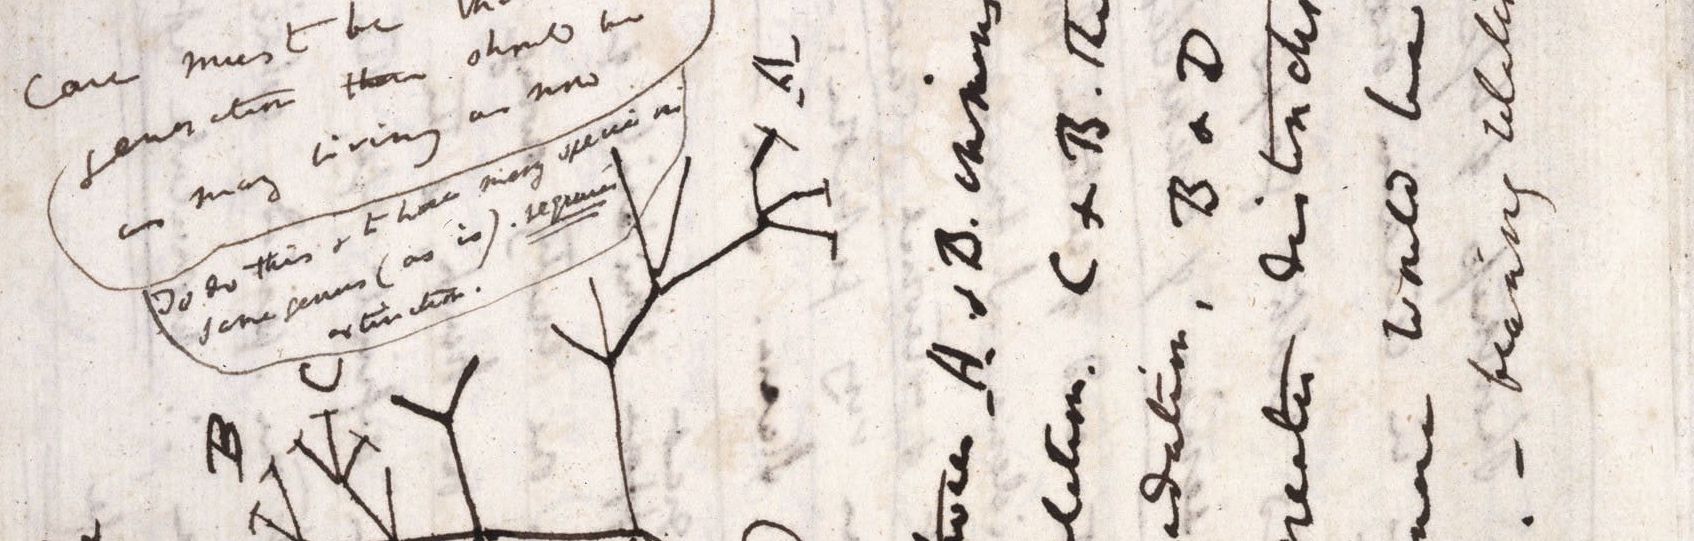 Case must be tha
generation then should be
as many living as now
To do this & to have many species in
same genus (as is). requires
extinction.
A
C
B
tween A & B. immens
elation. C & B. The
adation, B & D
reater distincti
would be
. – bearing relati